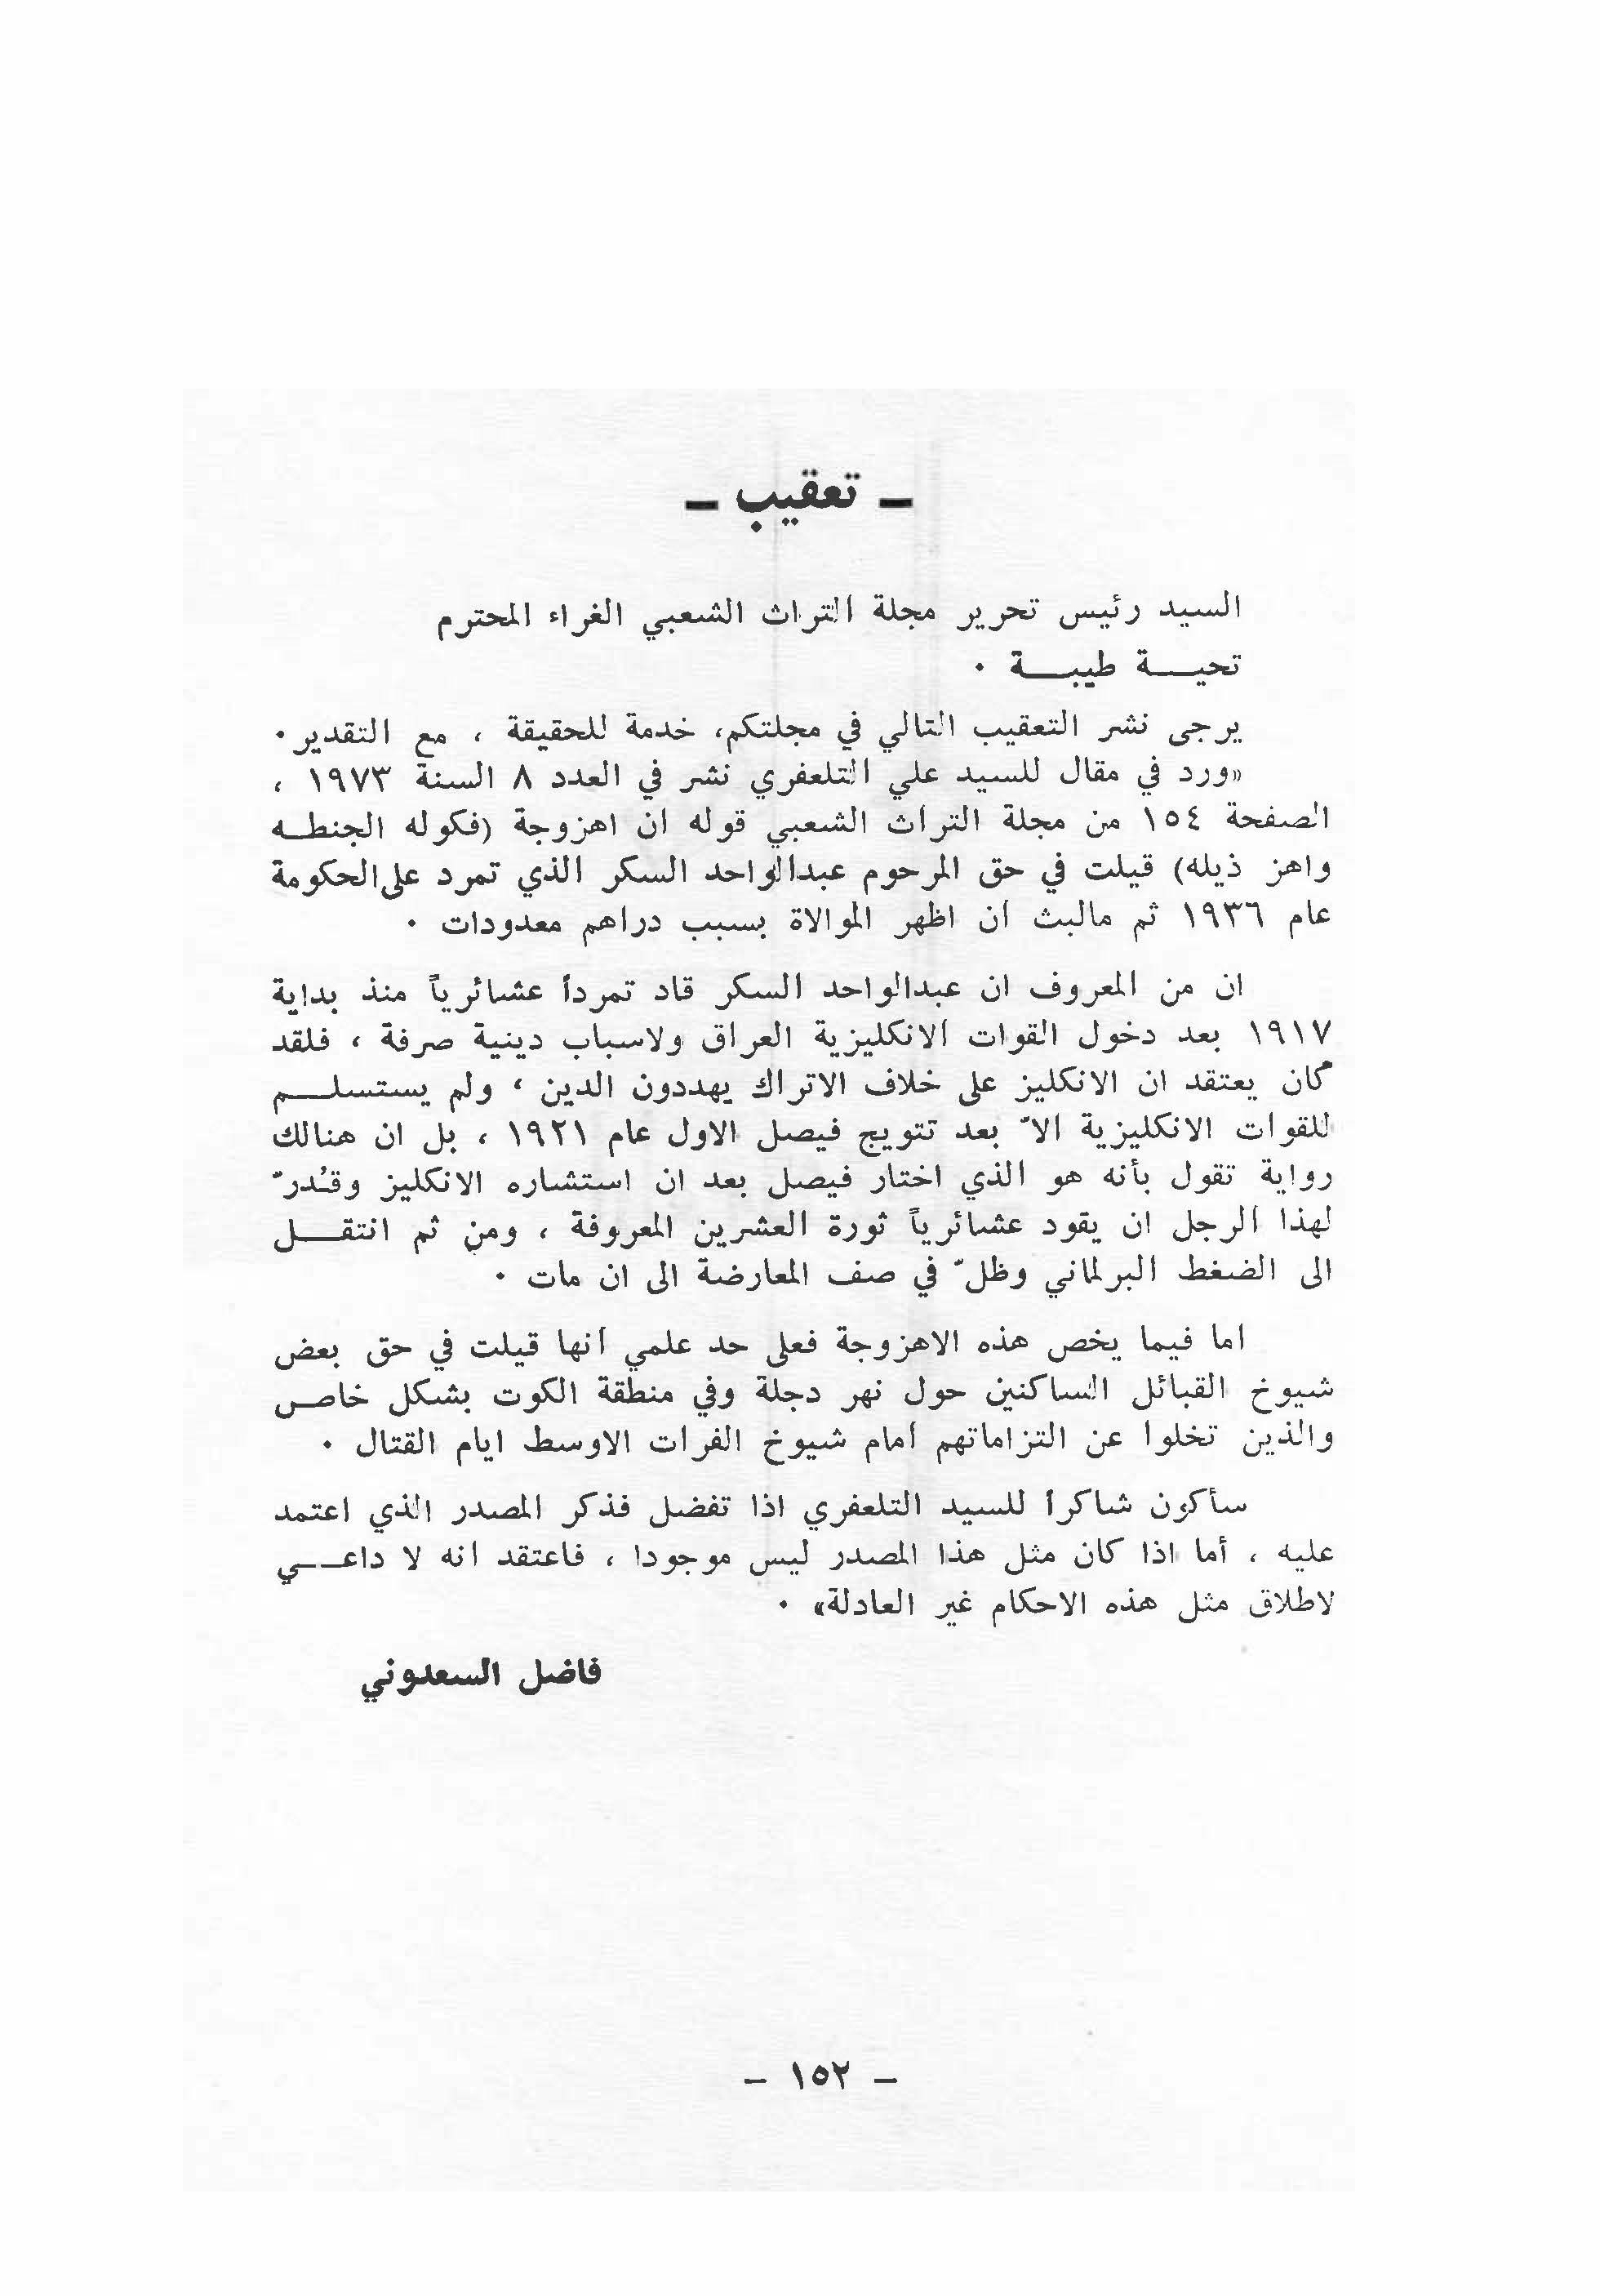 ـ تعقيب ـ
السيد رئيس تحرير مجلة التراث الشعبي الغراء المحترم
تحيـــة طيبـــة ٠
يرجى نشر التعقيب التالي في مجلتكم، خدمة للحقيقة ، مع التقدير٠
«ورد في مقال للسيد علي التلعفري نشر في العدد ٨ السنة ١٩٧٣ ،
الصفحة ١٥٤ من مجلة التراث الشعبي قوله ان اهزوجة (فكوله الجنطـه
واهز ذيله) قيلت في حق المرحوم عبدالواحد السكر الذي تمرد على الحكومة
عام ١٩٣٦ ثم مالبث ان اظهر الموالاة بسبب دراهم معدودات ٠
ان من المعروف ان عبدالواحد السكر قاد تمرداً عشائرياً منذ بداية
١٩١٧ بعد دخول القوات الانكليزية العراق ولاسباب دينية صرفة ، فلقد
كان يعتقد ان الانكليز على خلاف الاتراك يهددون الدين ، ولم يستسلـــم
للقوات الانكليزية الاّ بعد تتويج فيصل الاول عام ١٩٢١ ، بل ان هنالك
رواية تقول بأنه هو الذي اختار فيصل بعد ان استشاره الانكليز وقُدرّ
لهذا الرجل ان يقود عشائرياً ثورة العشرين المعروفة ، ومن ثم انتقـــل
الى الضغط البرلماني وظلّ في صف المعارضة الى ان مات ٠
اما فيما يخص هذه الاهزوجة فعلى حد علمي انها قيلت في حق بعض
شيوخ القبائل الساكنين حول نهر دجلة وفي منطقة الكوت بشكل خاص
والذين تخلوا عن التزاماتهم امام شيوخ الفرات الاوسط ايام القتال ٠
سأكون شاكراً للسيد التلعفري اذا تفضل فذكر المصدر الذي اعتمد
عليه ، أما اذا كان مثل هذا المصدر ليس موجودا ، فاعتقد انه لا داعـــي
لاطلاق مثل هذه الاحكام غير العادلة» ٠
فاضل السعدوني
ـ ١٥٢ ـ